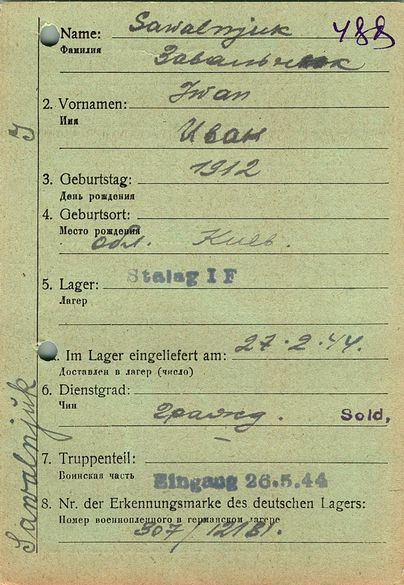 Name: Sawalnjuk
488
Фамилия
2. Vornamen: Jwan
Имя
Иван
3. Geburtstag: 1912
День рождения
4. Geburtsort:
Место рождения
обл. Киев.
5. Lager: Stalag I F
Лагер
. Im Lager eingeliefert am: 27·2·44.
Доставлен в лагер (число)
6. Dienstgrad:
Чин
гражд. Sold,
7. Truppenteil:
Воинская часть
Eingang 26.5.44
8. Nr. der Erkennungsmarke des deutschen Lagers:
Номер военнопленного в германском лагере
307/
Sawalnjuk J